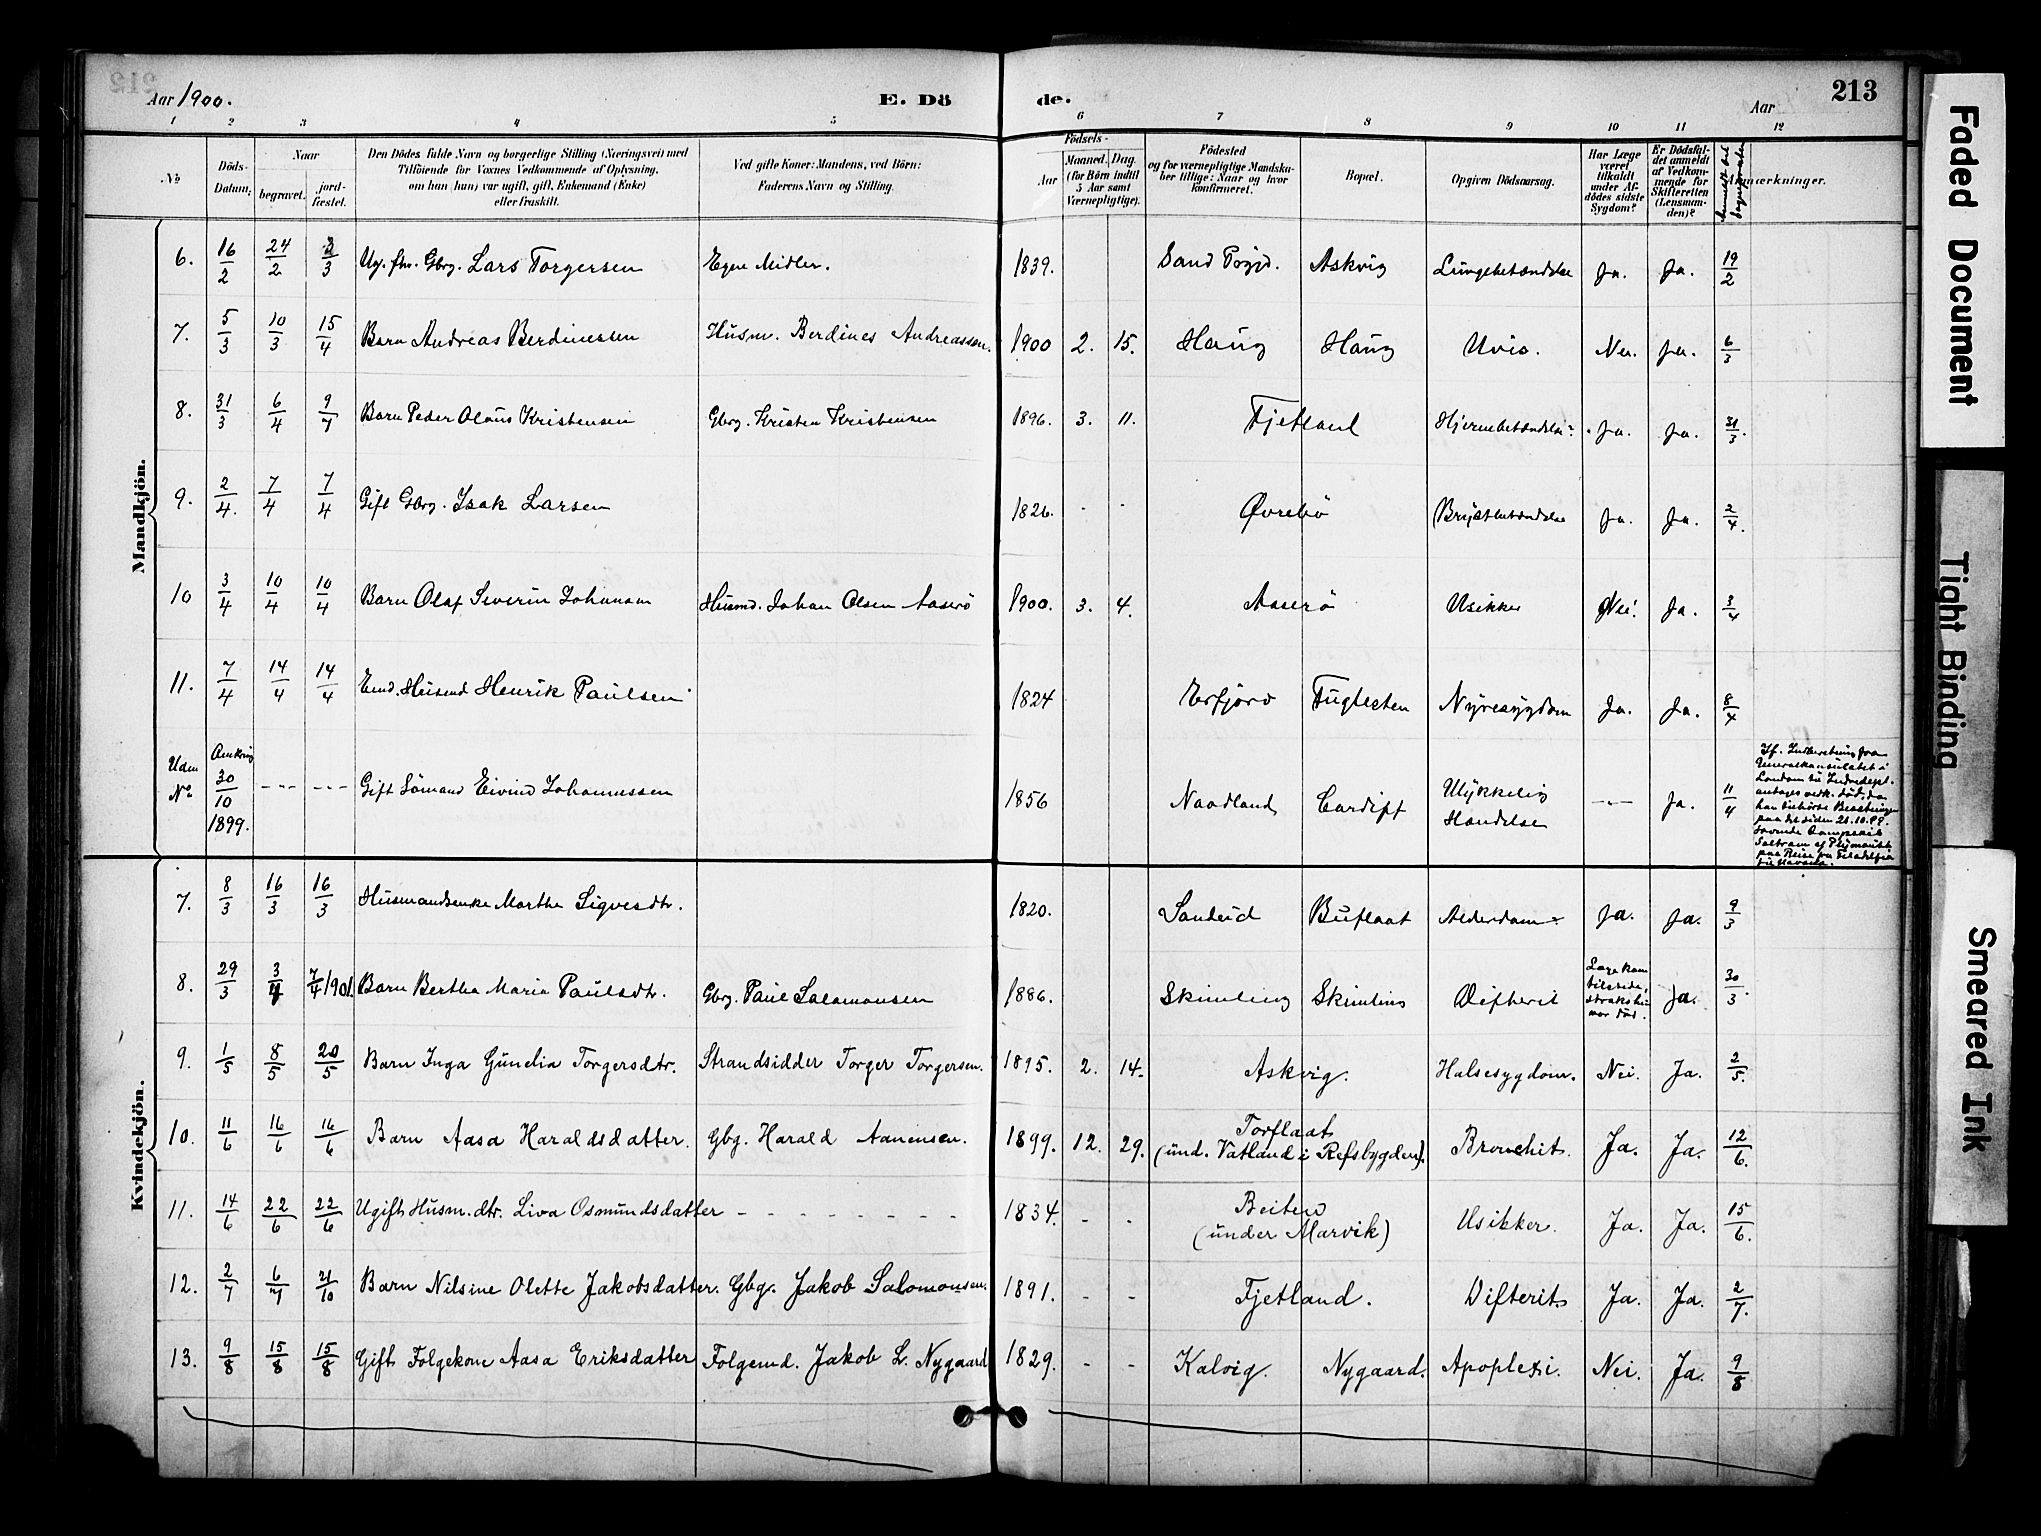 212
Aar 1900.
E. Dö
de.
Aar
213
1 2 3 4 5 6 7 8 9 10 11 12
No
Döds-Datum.
Naar
begravet.
jord-fæstet.
Den Dödes fulde Navn og borgerlige Stilling (Næringsvei) med
Tilföiende for Voxnes Vedkommende af Oplysning,
om han (hun) var ugift, gift, Enkemand (Enke)
eller fraskilt.
Ved gifte Koner: Mandens, ved Börn:
Faderens Navn og Stilling.
Födsels-
Aar
Maaned. Dag.
(for Börn indtil
5 Aar samt
Værnepligtige).
Födested
og for værnepligtige Mandska-
ber tillige: Naar og hvor
konfirmeret.
Bopæl.
Opgiven Dödsaarsag.
Har Læge
været
tilkaldt
under Af-
dödes sidste
Sygdom?
Er Dödsfal-
det anmeldt
af Vedkom-
mende for
Skifteretten
(Lensman-
den)?
Anmærkninger.
Mandkjön.
6. 16/2 24/2 3/3 Ug. fhv. Gbrg. Lars Torgersen Egne Midler. 1839. Sand Prgjd. Askvig Lungebetændelse Ja. Ja. 19/2
7. 5/3 10/3 15/4 Barn Andreas Berdinessen Husm. Berdines Andreassen. 1900 2. 15. Haug Haug Uvis. Nei. Ja. 6/3
8. 31/3 6/4 9/7 Barn Peder Olaus Kristensen Gbrg. Kristen Kristensen 1896. 3. 11. Fjetland Hjernebetændelse Ja. Ja. 31/3.
9. 2/4. 7/4 7/4 Gift Gbrg. Isak Larsen 1826. - - Øvrebø Brystbetændelse Ja. Ja. 2/4.
10 3/4 10/4 10/4 Barn Olaf Severin Johansen Husmd. Johan Olsen Aaserø 1900. 3. 4. Aaserø Usikker Nei. Ja. 3/4
11. 7/4 14/4 14/4 Enkmd. Husmd Henrik Paulsen 1824 Erfjord Fuglesten Nyresygdom Ja. Ja. 8/4
Uden No Omkring 30/10 1899. --- --- Gift Sömand Eivind Johannessen 1856 Naadland Cardiff Ulykkelig Hændelse --- Ja. 11/4
If. Indberetning fra
Generalkonsulatet i
London til Indredept.
antages vedk. död, da
han tilhörte Besætningen
paa det siden 21.10.99.
savnede Dampskib
Saltram af Plymouth
paa Reise fra Filadelfia
til Havana.
Kvindekjön.
7. 8/3 16/3 16/3 Husmandsenke Marthe Sigvesdtr. 1820. Sandeid Buflaat Alderdom Ja. Ja. 9/3
8. 29/3 3/4 7/4 1901. Barn Bertha Maria Paulsdtr. Gbrg. Paul Salamonsen 1886. Skimling Skimling Difterit Læge kom tilstede, straks hun var död. Ja. 30/3.
9. 1/5 8/5 20/5 Barn Inga Gunelia Torgersdtr. Strandsidder Torger Torgersen. 1895. 2. 14. Askvig. Halsesygdom. Nei. Ja. 2/5.
10. 11/6 16/6 16/6 Barn Aasa Haraldsdatter. Gbg. Harald Aanensen. 1899. 12. 29. Torflaat (und. Vatland i Refsbygden). Bronchit. Ja. Ja. 12/6.
11. 14/6 22/6 22/6 Ugift Husm.dtr. Liva Osmundsdatter - - - - - - - - 1834. - - Beiten (under Marvik) Usikker. Ja. Ja. 15/6.
12. 2/7 6/7 21/10 Barn Nilsine Olette Jakobsdatter. Gbg. Jakob Salomonsen. 1891. - - Fjetland. Difterit. Ja. Ja. 2/7.
13. 9/8 15/8 15/8 Gift Folgekone Aasa Eriksdatter Folgemd. Jakob L. Nygaard 1829. - - Kalvig. Nygaard. Apoplexi. Nei. Ja. 9/8
Faded Document
Tight Binding
Smeared Ink